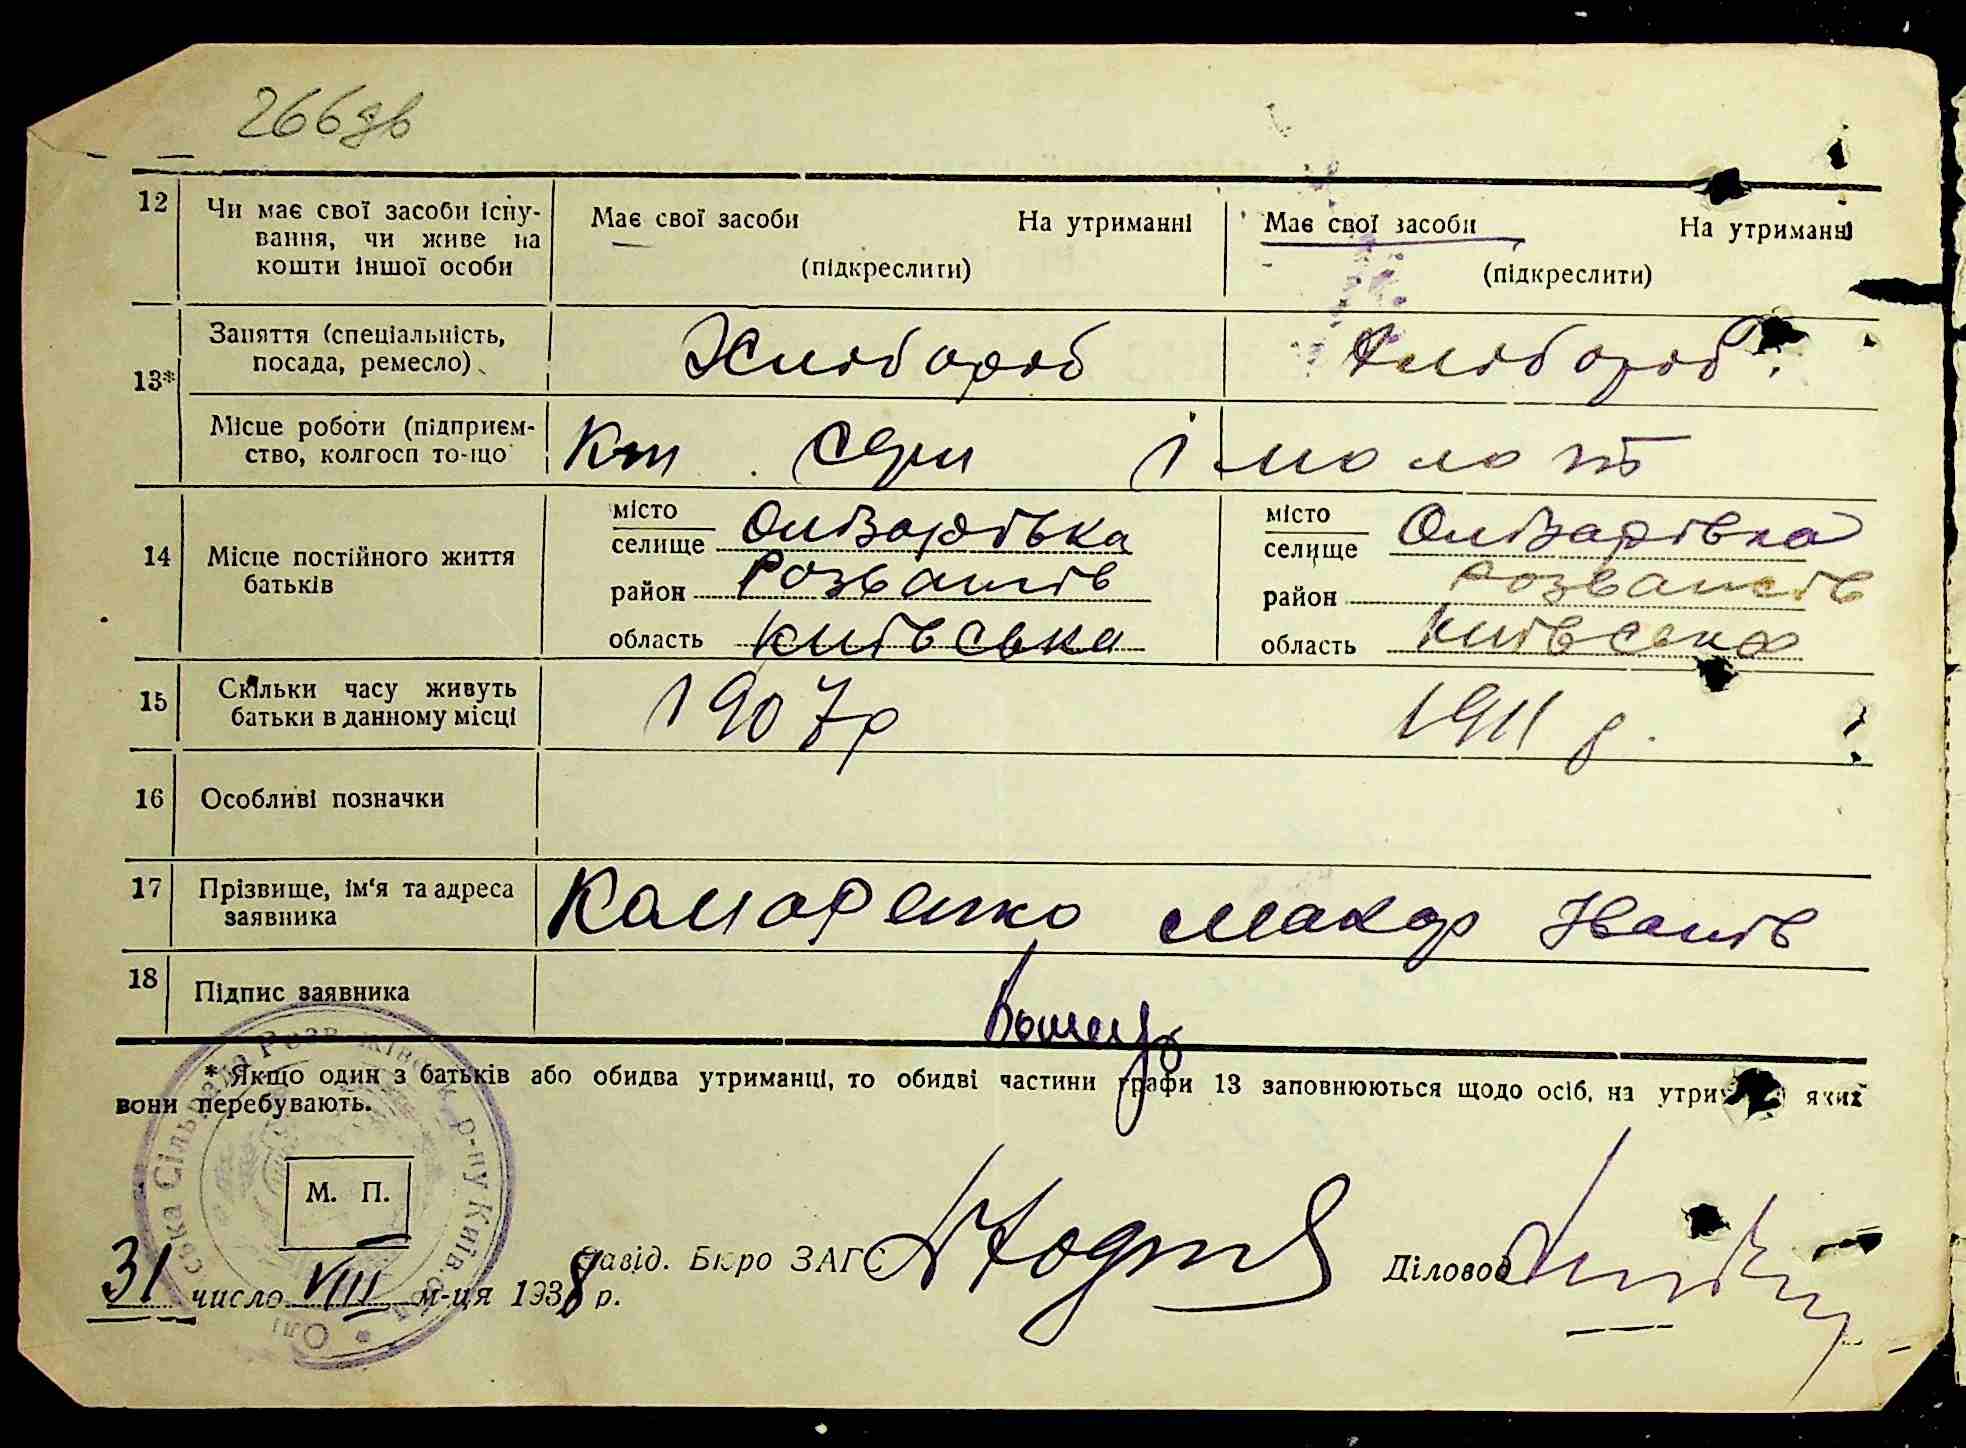 266зв
12 Чи має свої засоби існу-
вання, чи живе на
кошти іншої особи
Має свої засоби На утриманні
(підкреслити)
Має свої засоби На утриманні
(підкреслити)
13* Заняття (спеціальність,
посада, ремесло)
Хлібороб Хлібороб
Місце роботи (підприєм-
ство, колгосп то-що
Кт серп і молот
14 Місце постійного життя
батьків
місто
селище Олізарівка
район Розважів
область Київська
місто
селище Олізарівка
район Розважів
область Київська
15 Скільки часу живуть
батьки в данному місці
1907р 1911 р.
16 Особливі позначки
17 Прізвище, ім'я та адреса
заявника
Макар Іванів
18 Підпис заявника
* Якщо один з батьків або обидва утриманці, то обидві частини графи 13 заповнюються щодо осіб, на яких
вони перебувають.
М. П.
31 число VIII м-ця 1938 р.
Завід. Бюро ЗАГС
Діловод